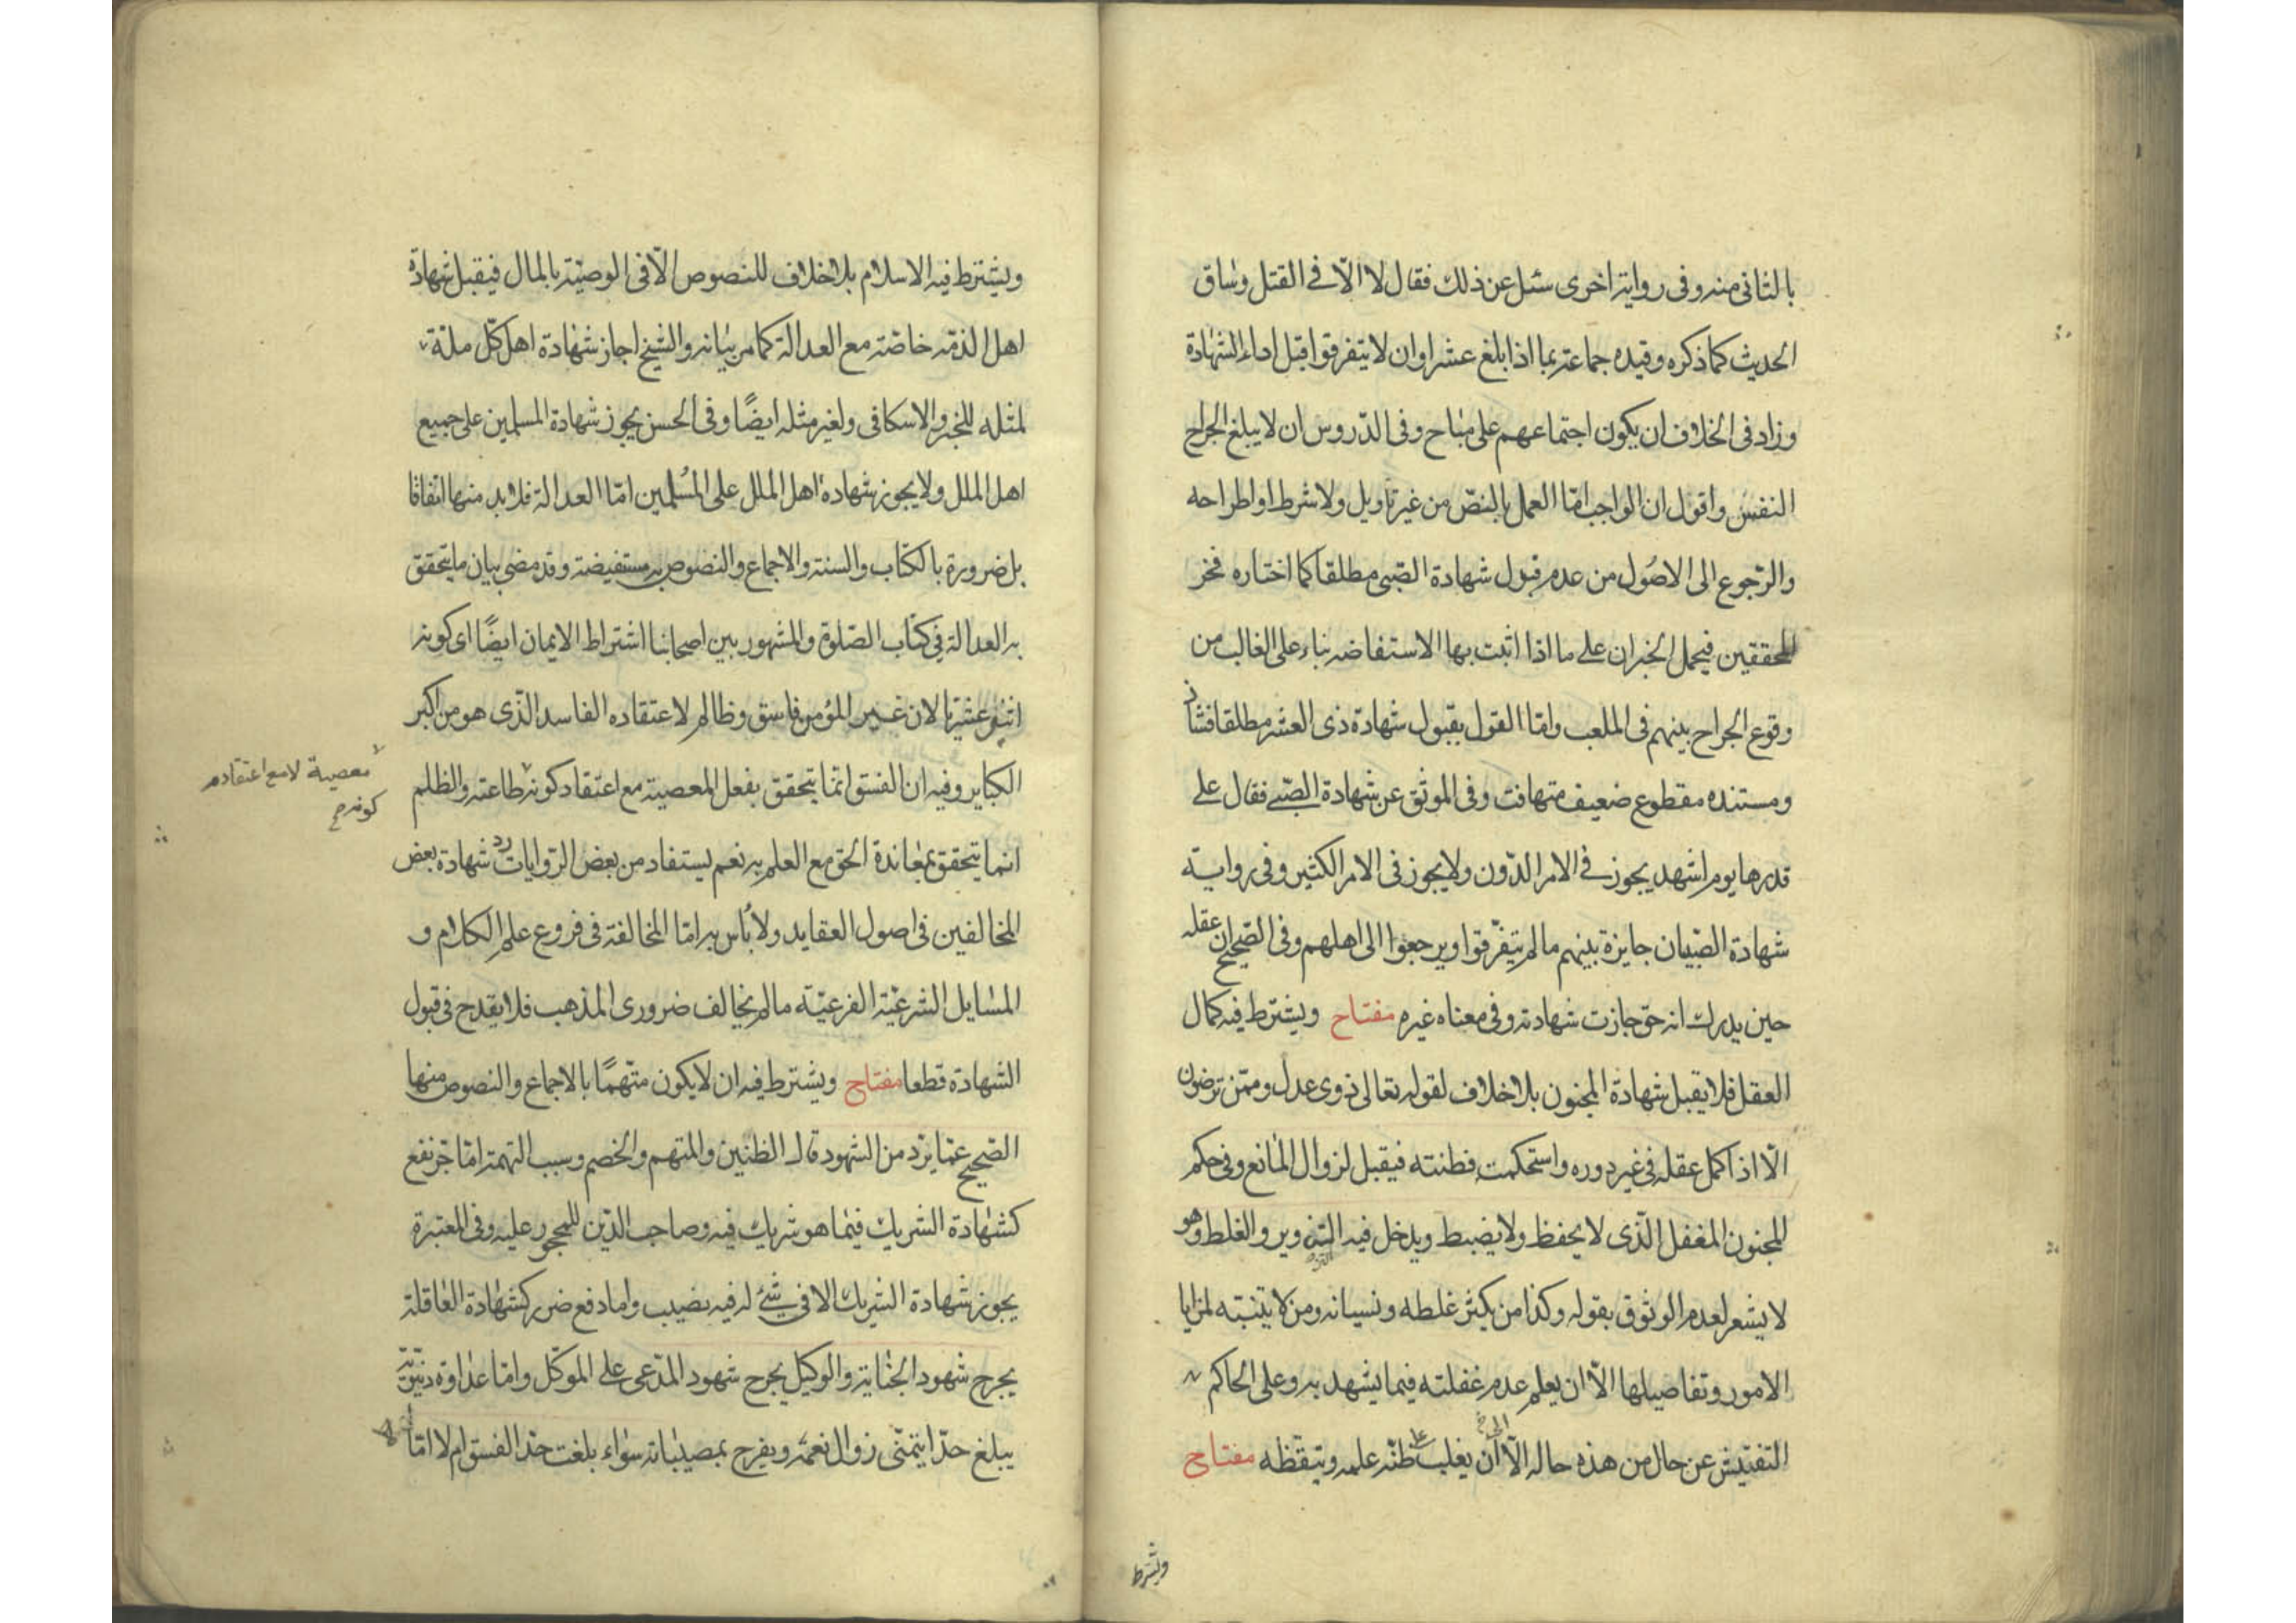 بالثانى منه وفى رواية اخرى سئل عن ذلك فقال لا الّا فى القتل وساق
الحديث كما ذكره وقيده جماعة بما اذا بلغ عشرا وان لا يتفرقوا قبل اداء الشهادة
وزاد فى الخلاف ان يكون اجتماعهم على مباح وفى الدّروس ان لا يبلغ الجراح
النفس واقول ان الواجب امّا العمل بالنصّ من غير تاويل ولا شرط او اطراحه
والرّجوع الى الاصول من عدم قبول شهادة الصّبى مطلقا كما اختاره فخر
المحققين فيحمل الخبران على ما اذا اثبت بها الاستفاضه بناء على الغالب من
وقوع الجراح بينهم فى الملعب وامّا القول بقبول شهادة ذى العشر مطلقا فشاذ
ومستنده مقطوع ضعيف متهافت وفى الموثق عن شهادة الصّبى فقال على
قدرها يوم اشهد يجوز فى الامر الدّون ولا يجوز فى الامر الكثير وفى رواية
شهادة الصّبيان جايزة بينهم ما لم يتفرّقوا او يرجعوا الى اهلهم وفى الصّحيح ان عقله
حين يدرك انه حق جازت شهادته وفى معناه غيره مفتاح ويشترط فيه كمال
العقل فلا يقبل شهادة المجنون بلا خلاف لقوله تعالى ذوى عدل وممّن ترضون
الّا اذا كمل عقله فى غير دوره واستحكمت فطنته فيقبل لزوال المانع وفى حكم
المجنون المغفل الّذى لا يحفظ ولا يضبط ويدخل فيه التزوير والغلط وهو
لا يشعر لعدم الوثوق بقوله وكذا من يكثر غلطه ونسيانه ومن لا يتنبّه لمزايا
الامور وتفاصيلها الّا ان يعلم عدم غفلته فيما يشهد به وعلى الحاكم
التفتيش عن حال من هذه حاله الّا ان يغلب على ظنّه علمه وتيقّظه مفتاح
ويشترط
ويشترط فيه الاسلام بلا خلاف للنصوص الّا فى الوصيّة بالمال فيقبل شهادة
اهل الذمّه خاصّة مع العدالة كما مر بيانه والشيخ اجاز شهادة اهل كلّ ملّة
لمثله للخبر والاسكافى ولغير مثله ايضًا وفى الحسن يجوز شهادة المسلمين على جميع
اهل الملل ولا يجوز شهادة اهل الملل على المُسلمين امّا العدالة فلا بد منها اتفاقا
بل ضرورة بالكتاب والسنة والاجماع والنصوص به مستفيضة وقد مضى بيان ما يتحقق
به العدالة فى كتاب الصّلوة والمشهور بين اصحابنا اشتراط الايمان ايضًا اى كونه
اثنى عشريا لان غير المؤمن فاسق وظالم لاعتقاده الفاسد الّذى هو من اكبر
الكباير وفيه ان الفسق انّما يتحقق بفعل المعصية مع اعتقاد كونه طاعته والظلم
معصية لا مع اعتقاده
كونه
انما يتحقق بمعاندة الحق مع العلم به نعم يستفاد من بعض الرّوايات ردّ شهادة بعض
المخالفين فى اصول العقايد ولا بأس به امّا المخالفة فى فروع علم الكلام و
المسايل الشرعيّة الفرعيّة ما لم يخالف ضرورى المذهب فلا يقدح فى قبول
الشهادة قطعا مفتاح ويشترط فيه ان لا يكون متّهمًا بالاجماع والنصوص منها
الصّحيح عمّا يردّ من الشهود قال الظنين والمتهم والخصم وسبب التهمة امّا جرّ نفع
كشهادة الشريك فيما هو شريك فيه وصاحب الدّين للمحجور عليه وفى المعتبرة
يجوز شهادة الشريك الا فى شئ له فيه نصيب واما دفع ضرر كشهادة العاقلة
بجرح شهود الجناية والوكيل بجرح شهود المدّعى على الموكّل وامّا عداوة دنيويّة
يبلغ حدّا يتمنّى زوال نعمته ويفرح بمصيباته سواء بلغت حدّ الفسق ام لا امّا